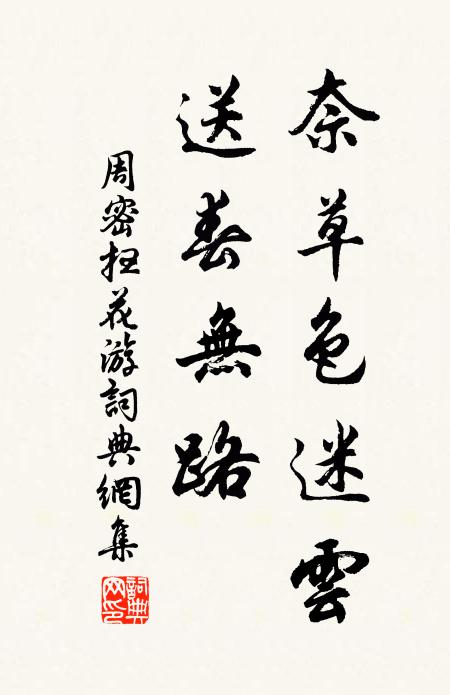 奈草色迷雲
送春無路
周密掃花游詞典網集
詞典網印